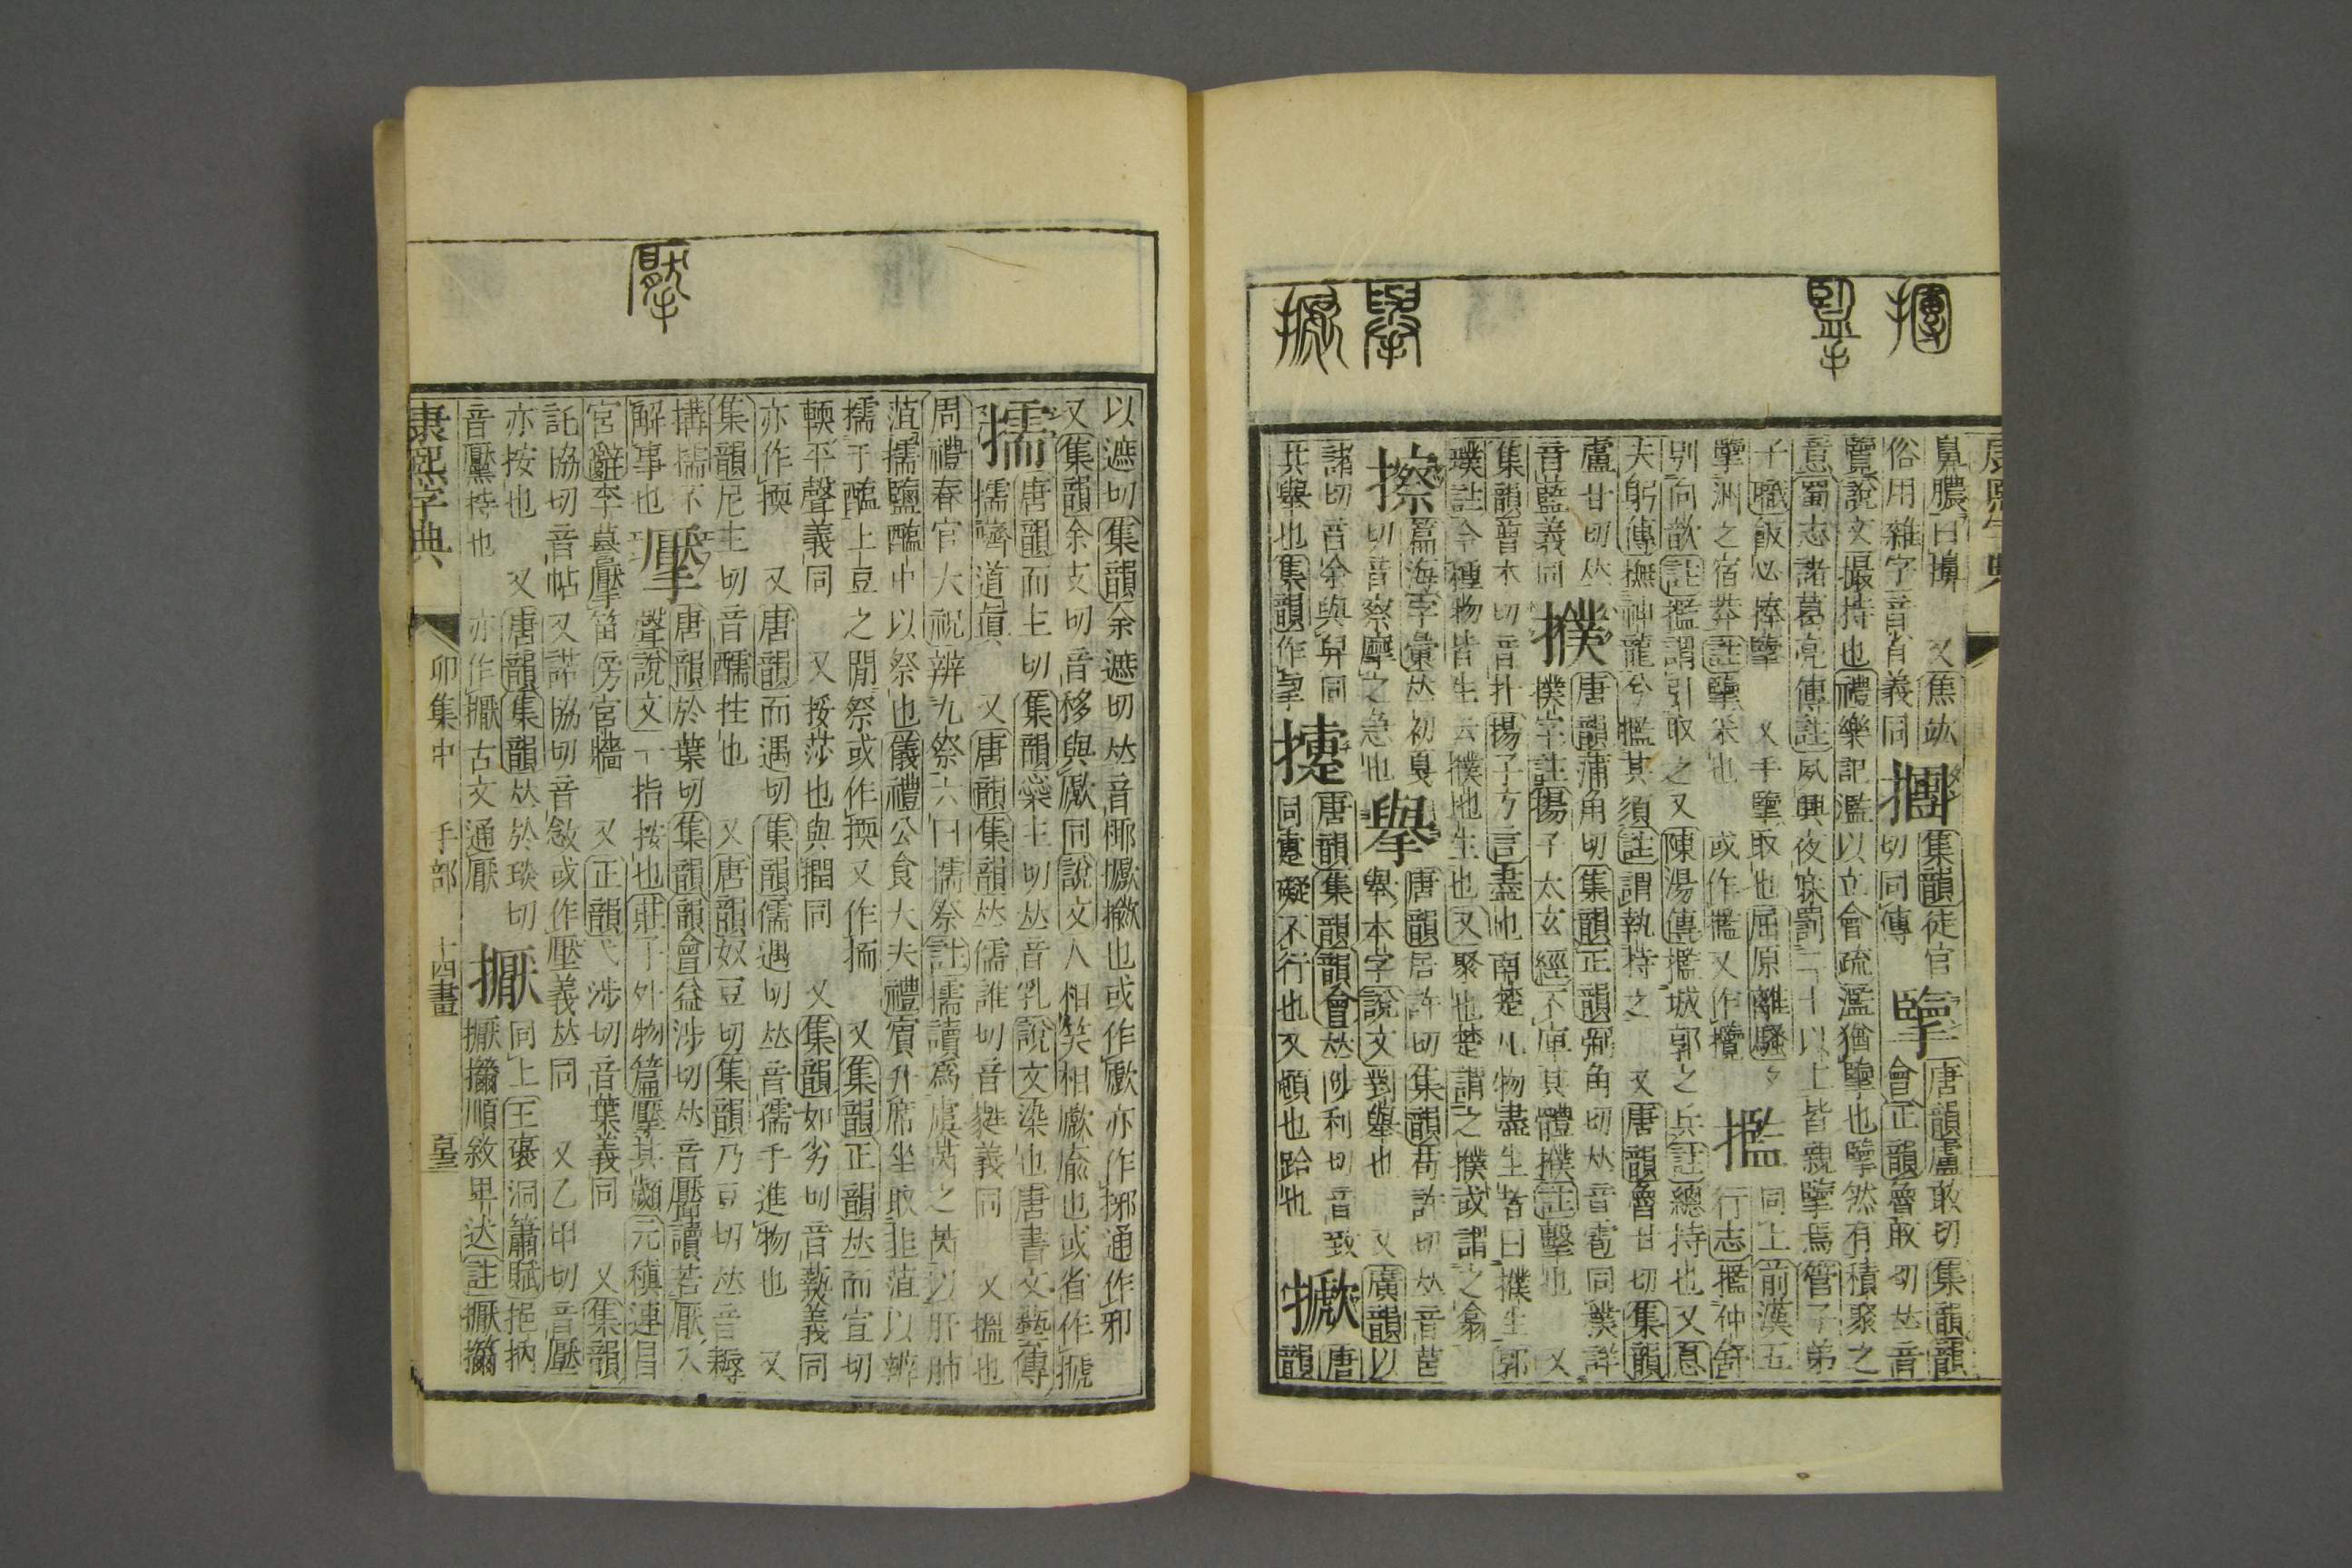 鼻膿曰擤 又焦竑 擹 集韻徒官 擥 唐韻盧敢切集韻韻
俗用雜字音省義同 切同摶 會正韻魯敢切𠀤音
覽說文撮持也禮樂記濫以立會疏濫猶擥也擥然有積聚之
意蜀志諸葛亮傳註夙興夜寐罰二十以上皆親擥焉管子弟
子職飯必捧擥 又手擥取也屈原離騷夕 㩜 同上前漢五
擥洲之宿莽註擥采也 或作㩜又作攬 行志㩜仲舒
別向歆註㩜謂引取之又陳湯傳㩜城郭之兵註總持也又息
夫躬傳撫神龍兮㩜其須註謂執持之 又唐韻魯甘切集韻
盧甘切𠀤 擈 唐韻蒲角切集韻正韻弼角切𠀤音雹同撲詳
音藍義同 撲字註揚子太玄經不庫其體擈註擊也 又
集韻普木切音扑揚子方言盡也南楚凡物盡生者曰擈生郭
璞註今種物皆生云擈地生也又聚也楚謂之擈或謂之翕
擦 篇海字彙𠀤初戛 擧 唐韻居許切集韻苟許切𠀤音莒
切音察摩之急也 舉本字說文對舉也 又廣韻以
諸切音余與舁同 㨖 唐韻集韻韻會𠀤陟利切音致 㩎 唐
共舉也集韻作舉 同疐礙不行也又頓也跲也 韻
以遮切集韻余遮切𠀤音耶㩎歈也或作歋亦作捓通作邪
又集韻余支切音移與歋同說文人相笑相歋瘉也或省作搋
擩 唐韻而主切集韻蘂主切𠀤音乳說文染也唐書文藝傳
擩嚌道眞 又唐韻集韻𠀤儒誰切音甤義同 又揾也
周禮春官大祝辨九祭六曰擩祭註擩讀爲虞芮之芮以肝肺
菹擩鹽醢中以祭也儀禮公食大夫禮賓升席坐取韭菹以辨
擩于醢上豆之閒祭或作擩又作㨎 又集韻正韻𠀤而宣切
輭平聲義同 又挼莎也與撋同 又集韻如劣切音爇義同
亦作㨎 又唐韻而遇切集韻儒遇切𠀤音孺手進物也 又
集韻尼主切音醹拄也 又唐韻奴豆切集韻乃豆切𠀤音耨
搆擩不 擪 唐韻於葉切集韻韻會益涉切𠀤音魘讀若厭入
解事也 聲說文一指按也莊子外物篇擪其顪元稹連昌
宮辭李謩擪笛傍宮牆 又正韻弋涉切音葉義同 又集韻
託協切音帖又諾協切音敜或作壓義𠀤同 又乙甲切音壓
亦按也 又唐韻集韻𠀤於琰切 擫 同上王褒洞簫賦挹抐
音黶持也 亦作擫古文通厭 擫㩶順敘卑迖註擫㩶
康熙字典 卯集中 手部 十四畫